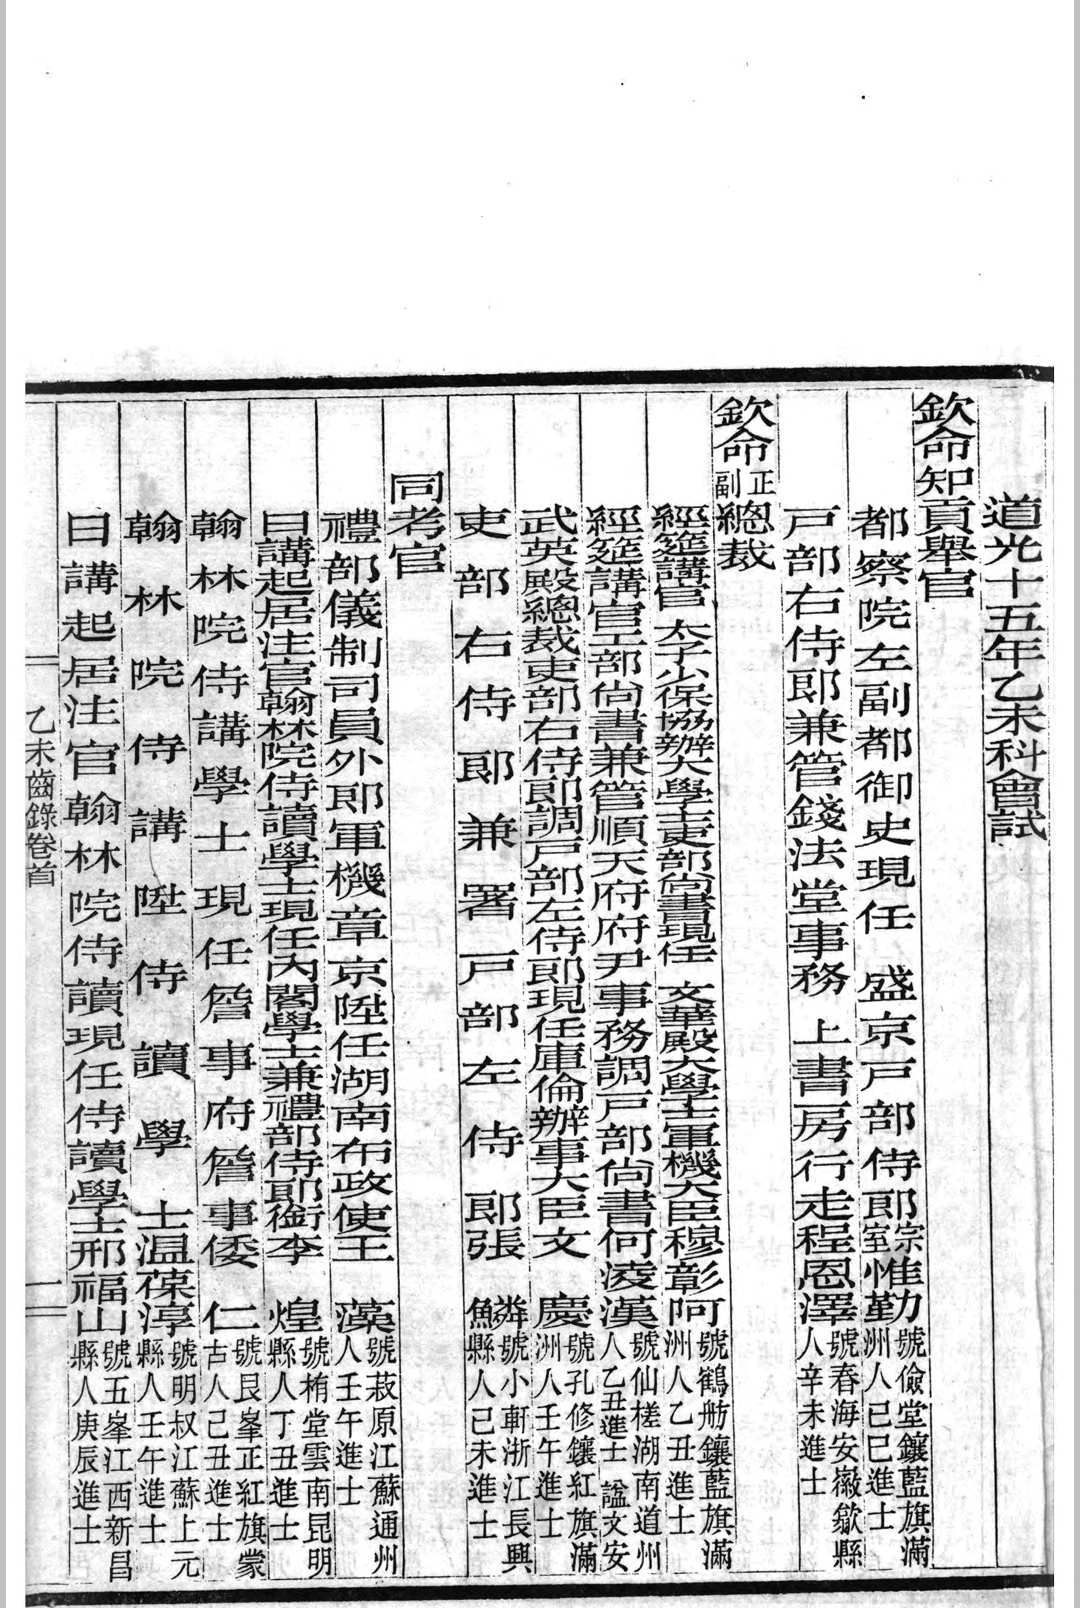 道光十五年乙未科會試
欽命知貢舉官
都察院左副都御史現任 盛京戶部侍郎宗室惟勤號儉堂鑲藍旗滿洲人己巳進士
戶部右侍郎兼管錢法堂事務 上書房行走程恩澤號春海安徽歙縣人辛未進士
欽命正副總裁
經筵講官 太子少保協辦大學士吏部尚書現任 文華殿大學士軍機大臣穆彰阿號鶴舫鑲藍旗滿洲人乙丑進士
經筵講官工部尚書兼管順天府府尹事務調戶部尚書何凌漢號仙槎湖南道州人乙丑進士 謚文安
武英殿總裁吏部右侍郎調戶部左侍郎現任庫倫辦事大臣文 慶號孔修鑲紅旗滿洲人壬午進士
吏部右侍郎兼署戶部左侍郎張 鱗號小軒浙江長興縣人己未進士
同考官
禮部儀制司員外郎軍機章京陞任湖南布政使王 藻號菽原江蘇通州人壬午進士
日講起居注官翰林院侍讀學士現任內閣學士兼禮部侍郎銜李 煌號楠堂雲南昆明縣人丁丑進士
翰林院侍講學士現任詹事府詹事倭 仁號艮峯正紅旗蒙古人己丑進士
翰林院侍講陞侍讀學士溫葆淳號明叔江蘇上元縣人壬午進士
日講起居注官翰林院侍讀現任侍讀學士邢福山號五峯江西新昌縣人庚辰進士
乙未齒錄卷首 一